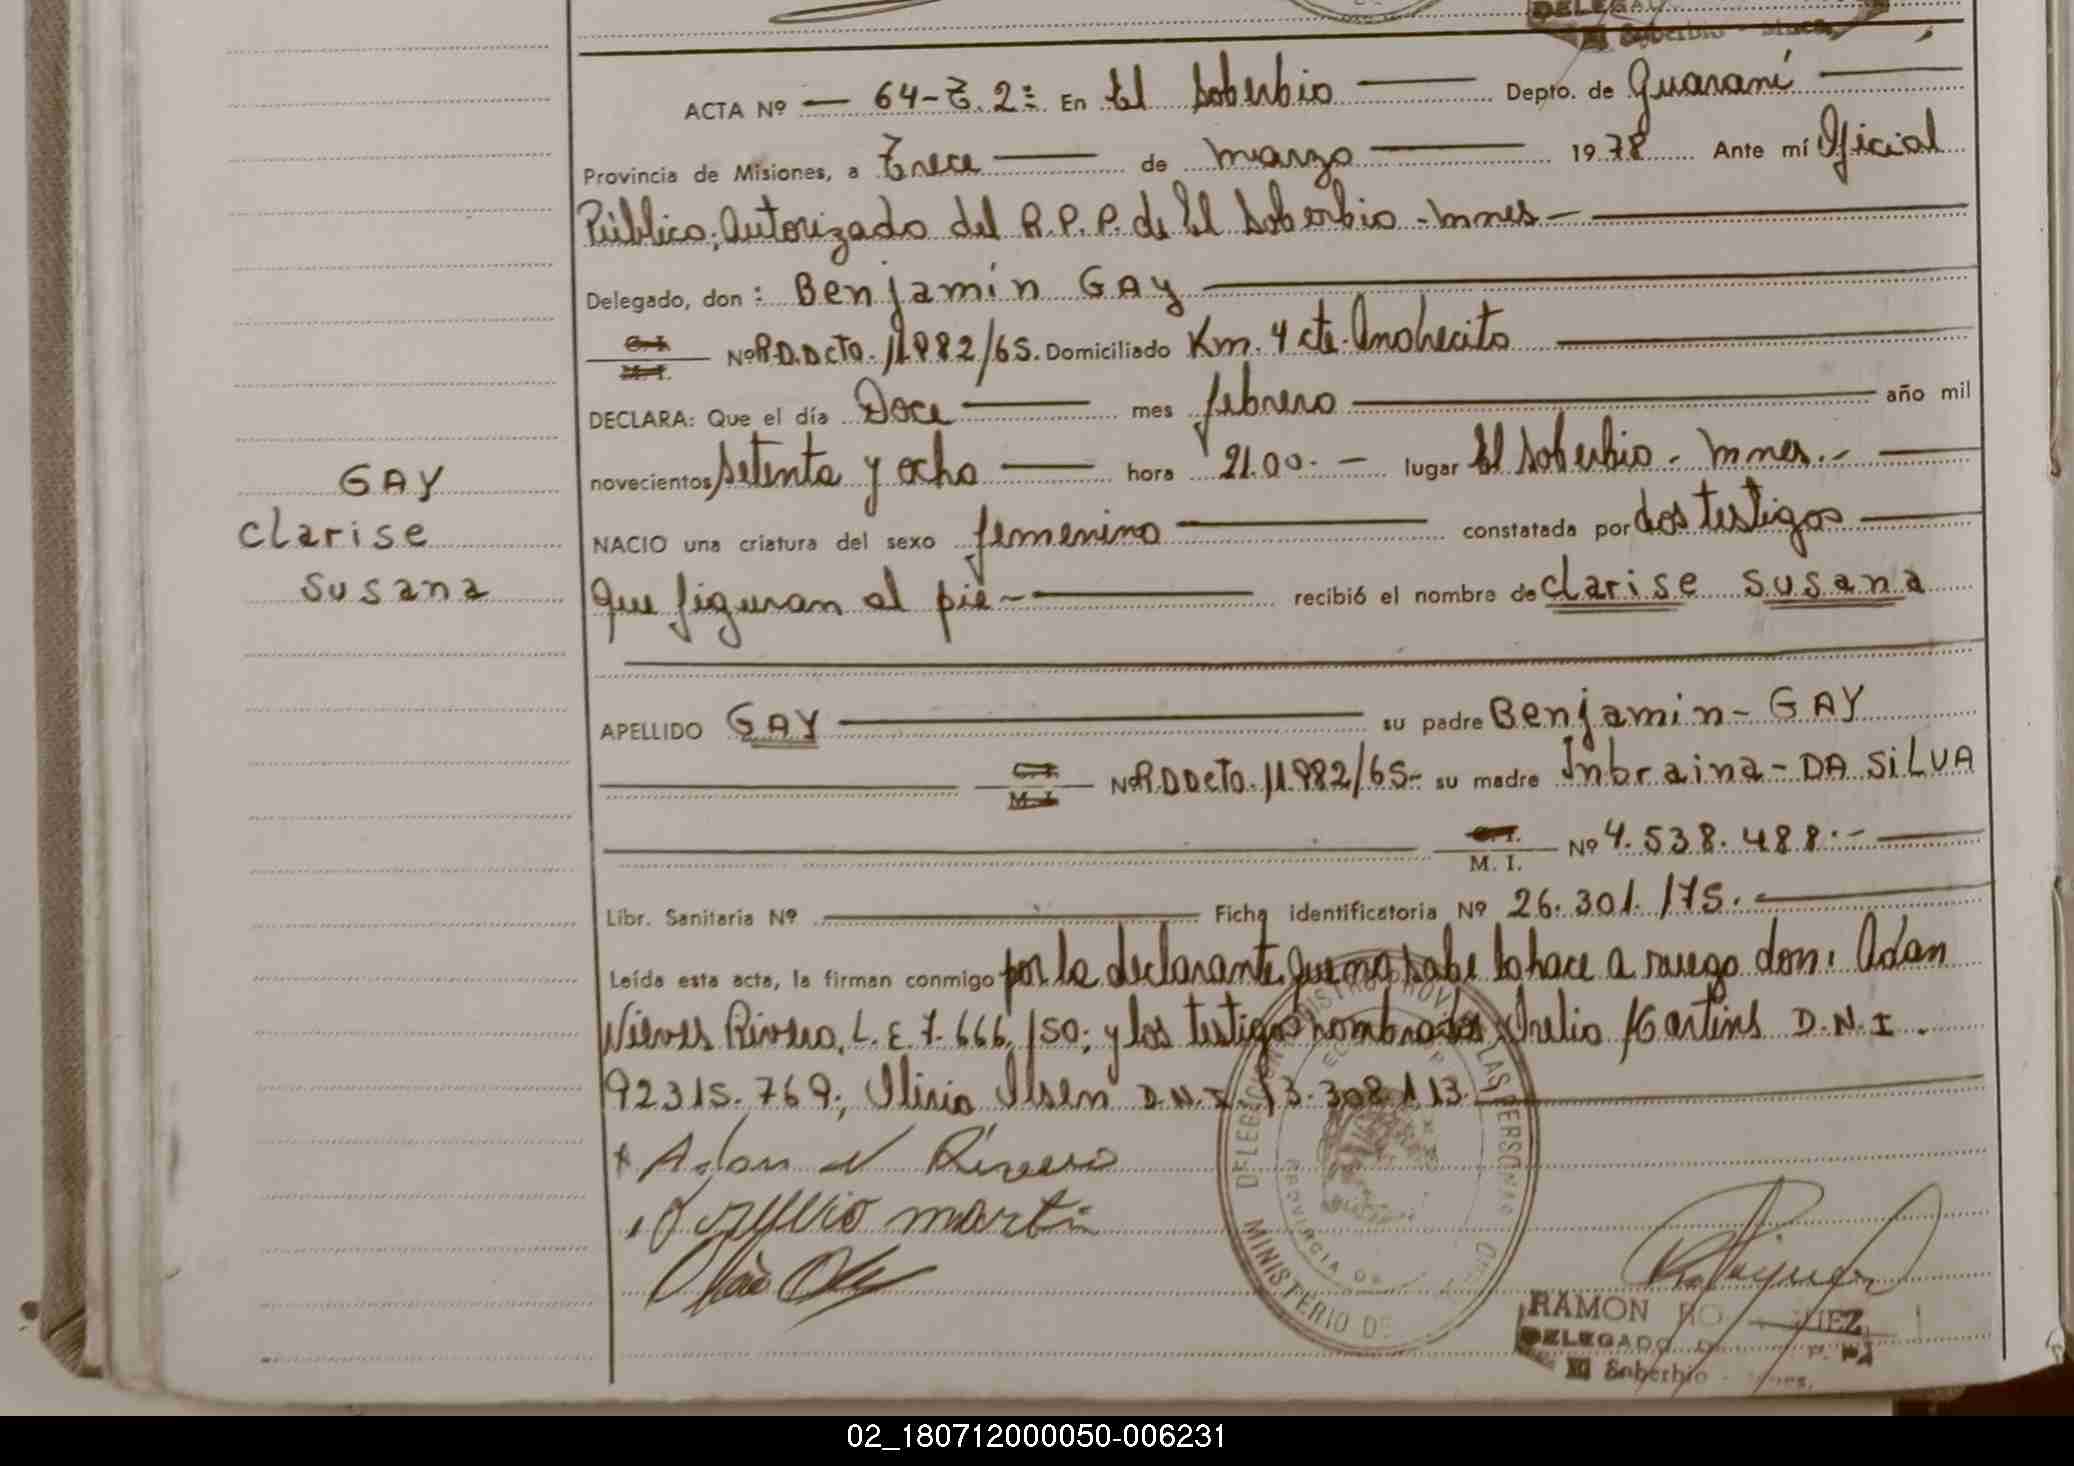 DELEGA
El Soberbio - Mnes.
ACTA Nº — 64-T. 2: En El Soberbio — Depto. de Guaraní —
Provincia de Misiones, a Trece — de marzo — 1978 Ante mí Oficial
Público, Autorizado del R.P.P. de El Soberbio - Mnes —
Delegado, don: Benjamín GAY —
C. I. M. I. Nº R.D.Dcto. 11.982/65. Domiciliado Km. 4 cte. Anohecito —
DECLARA: Que el día Doce — mes febrero — año mil
novecientos setenta y ocho — hora 21.00. — lugar El Soberbio - Mnes. —
GAY
Clarise
Susana
NACIO una criatura del sexo femenino — constatada por dos testigos —
que figuran al pie — recibió el nombre de Clarise Susana
APELLIDO GAY — su padre Benjamin - GAY
C. I. M. I. Nº R.D.Dcto. 11.982/65- su madre Inbraina - DA SILVA
C. I. M. I. Nº 4.538.488. —
Libr. Sanitaria Nº — Ficha identificatoria Nº 26.301./75. —
Leída esta acta, la firman conmigo por la declarante que no sabe lo hace a ruego don: Adán
Nieves Rivero, L.E. 7.666./50; y los testigos nombrados, Martins D.N.I.
92315.769; Olsen D.N.I. 13.308.113. —
Adan N Rivero
marti
DELEGACION REGISTRO PROV LAS PERSONAS
PROVINCIA DE
MINISTERIO DE
RAMON RO UEZ
DELEGADO D P. P.
El Soberbio - Mnes.
02_180712000050-006231